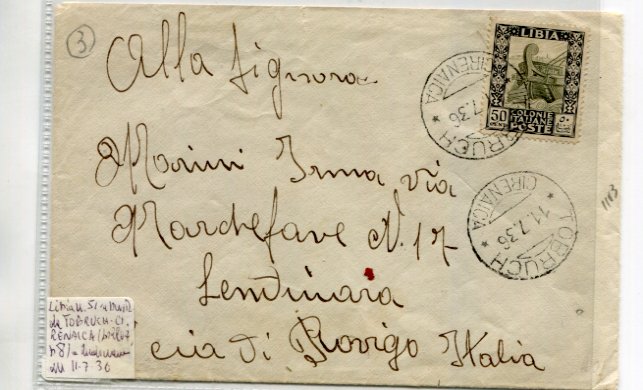 3
Alla Signora
Marini Irma via
Marchefave N. 17
Lendinara
cia di Rovigo Italia
LIBIA
50
CENT.
COLONIE
ITALIANE
POSTE
TOBRUCH
* CIRENAICA *
7.36
TOBRUCH
* CIRENAICA *
11.7.36
1183
Libia n. 51
da TOBRUCH. CI
RENAICA
p 8/=
11-7-36